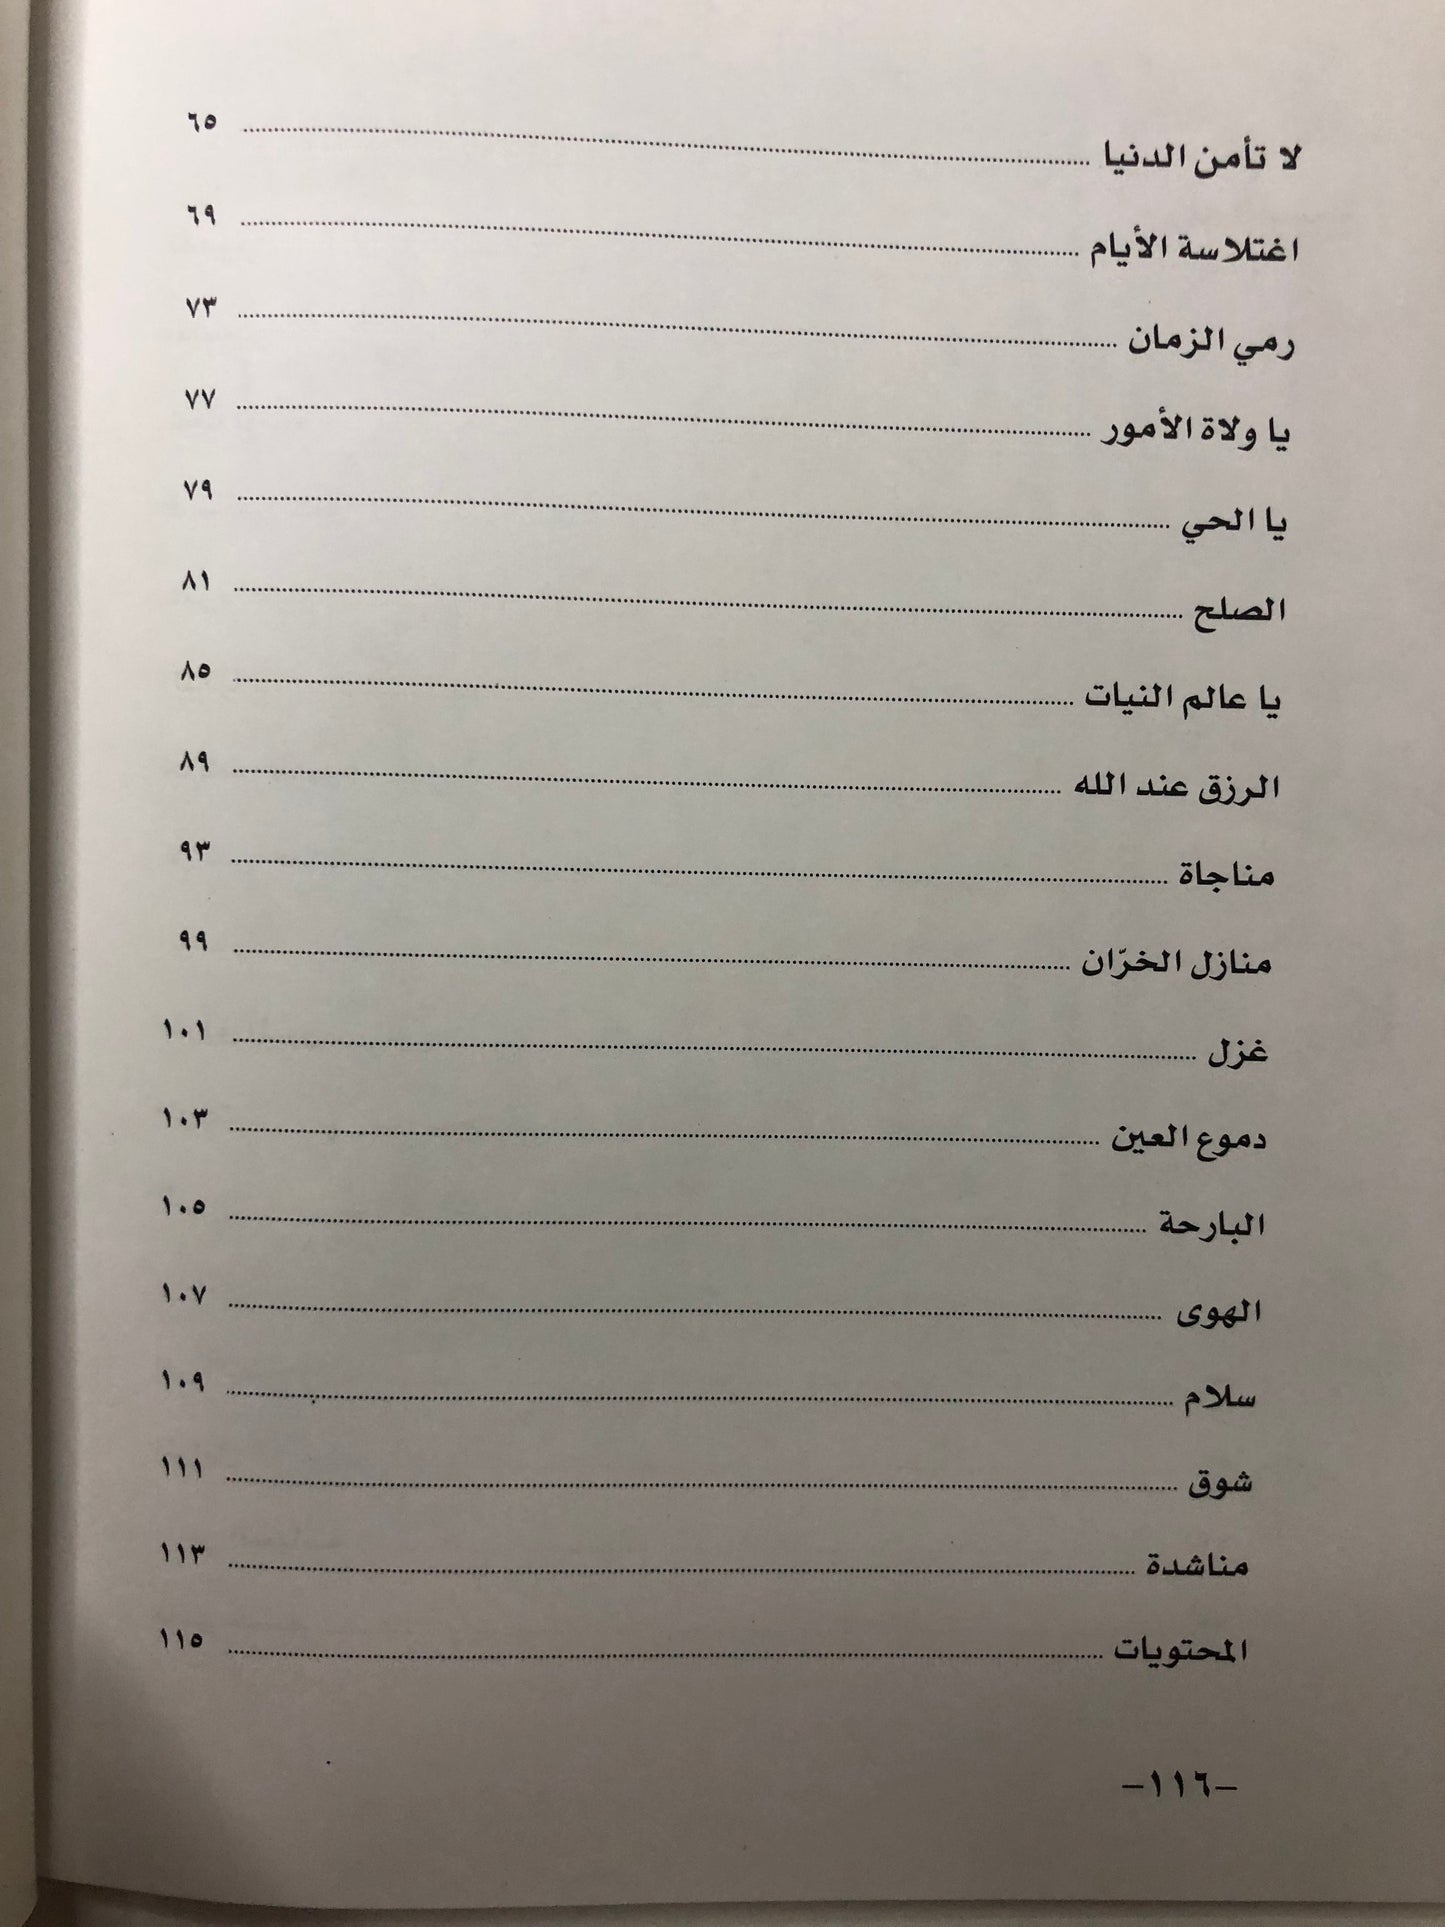 لا تأمن الدنيا ........ ٦٥
اغتلاسة الأيام ........ ٦٩
رمي الزمان ........ ٧٣
يا ولاة الأمور ........ ٧٧
يا الحي ........ ٧٩
الصلح ........ ٨١
يا عالم النيات ........ ٨٥
الرزق عند الله ........ ٨٩
مناجاة ........ ٩٣
منازل الخرّان ........ ٩٩
غزل ........ ١٠١
دموع العين ........ ١٠٣
البارحة ........ ١٠٥
الهوى ........ ١٠٧
سلام ........ ١٠٩
شوق ........ ١١١
مناشدة ........ ١١٣
المحتويات ........ ١١٥
–١١٦–